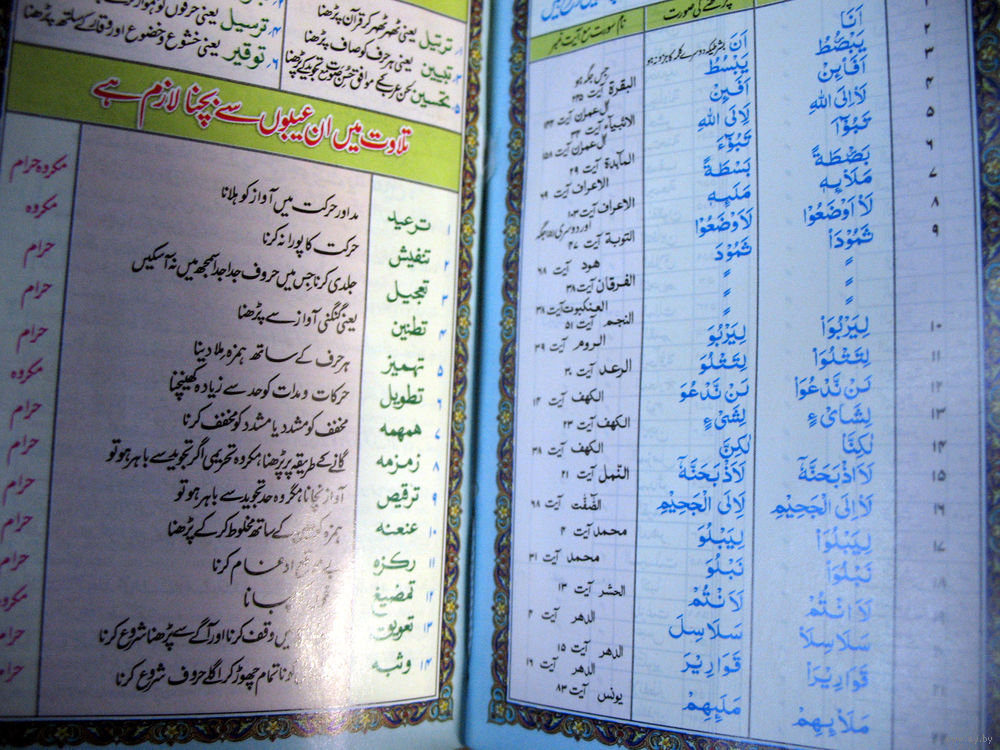 ۱ ترتیل یعنی ٹھہر ٹھہر کر قرآن پڑھنا
۲ تبیین یعنی ہر حرف کو صاف پڑھنا
۴ ترسیل
۵ تحسین
۶ توقیر یعنی خشوع و خضوع اور وقار کے ساتھ پڑھنا
تلاوت میں ان عیبوں سے بچنا لازم ہے
۱ ترعید مد اور حرکت میں آواز کو ہلانا مکروہ حرام
۲ تنفیش حرکت کا پورا نہ کرنا مکروہ
۳ تعجیل جلدی کرنا جس میں حروف جدا جدا سمجھ میں نہ آسکیں حرام
۴ تطنین یعنی گنگنی آواز سے پڑھنا حرام
۵ تہمیز ہر حرف کے ساتھ ہمزہ ملا دینا حرام
۶ تطویل حرکات و مدات کو حد سے زیادہ کھینچنا مکروہ
۷ ہمہمہ مخفف کو مشدد یا مشدد کو مخفف کرنا حرام
۸ زمزمہ گانے کے طریقہ پر پڑھنا، مکروہ تحریمی اگر تجوید سے باہر ہو تو حرام
۹ ترقیص آواز نچانا، مگر وہ حد تجوید سے باہر ہو تو حرام
۱۰ عنعنہ ہمزہ کے ساتھ مخلوط کر کے پڑھنا حرام
۱۱ رکزہ ادغام کرنا حرام
۱۲ تمضیغ چبانا مکروہ
۱۳ تعویق میں وقف کرنا اور آگے سے پڑھنا شروع کرنا حرام
۱۴ وثبہ ناتمام چھوڑ کر اگلے حروف شروع کرنا حرام
پڑھنے کی صورت نام سورت مع آیت نمبر
اَنَا اَنَ بشرطیکہ دوسرے کلمہ کا جزو نہ ہو جس جگہ ہو
۲ يَبْصُۜطُ يَبْسُطُ البقرة آیت ۲۴۵
۳ اَفَا۠ئِنْ اَفَئِنْ آل عمران آیت ۱۴۴ الانبیاء آیت ۳۴
۴ لَا۠اِلَى اللّٰهِ لَاِلَى اللّٰهِ آل عمران آیت ۱۵۸
۵ تَبُوْٓءَا۠ تَبُوْٓءَ المآئدة آیت ۲۹
۶ بَصْۜطَةً بَسْطَةً الاعراف آیت ۶۹
۷ مَلَا۠ئِهٖ مَلَئِهٖ الاعراف آیت ۱۰۳ اور دوسری جگہ
۸ لَا۠اَوْضَعُوْا لَاَوْضَعُوْا التوبة آیت ۴۷
۹ ثَمُوْدَا۠ ثَمُوْدَ هود آیت ۶۸
〃 〃 الفرقان آیت ۳۸
〃 〃 العنكبوت آیت ۳۸
〃 〃 النجم آیت ۵۱
۱۰ لِيَرْبُوَا۠ لِيَرْبُوَ الروم آیت ۳۹
۱۱ لِتَتْلُوَا۠ لِتَتْلُوَ الرعد آیت ۳۰
۱۲ لَنْ نَّدْعُوَا۠ لَنْ نَّدْعُوَ الكهف آیت ۱۴
۱۳ لِشَا۠ىْءٍ لِشَىْءٍ الكهف آیت ۲۳
۱۴ لٰكِنَّا۠ لٰكِنَّ الكهف آیت ۳۸
۱۵ لَا۠اَذْبَحَنَّهٗٓ لَاَذْبَحَنَّهٗٓ النمل آیت ۲۱
۱۶ لَا۠اِلَى الْجَحِيْمِ لَاِلَى الْجَحِيْمِ الصّٰفّٰت آیت ۶۸
۱۷ لِيَبْلُوَا۠ لِيَبْلُوَ محمد آیت ۴
۱۸ نَبْلُوَا۠ نَبْلُوَ محمد آیت ۳۱
لَا۠اَنْتُمْ لَاَنْتُمْ الحشر آیت ۱۳
سَلَاسِلَا۠ سَلَاسِلَ الدهر آیت ۴
قَوَارِيْرَا۠ قَوَارِيْرَ الدهر آیت ۱۵ الدهر آیت ۱۶
مَلَا۠ئِهِمْ مَلَئِهِمْ يونس آیت ۸۳